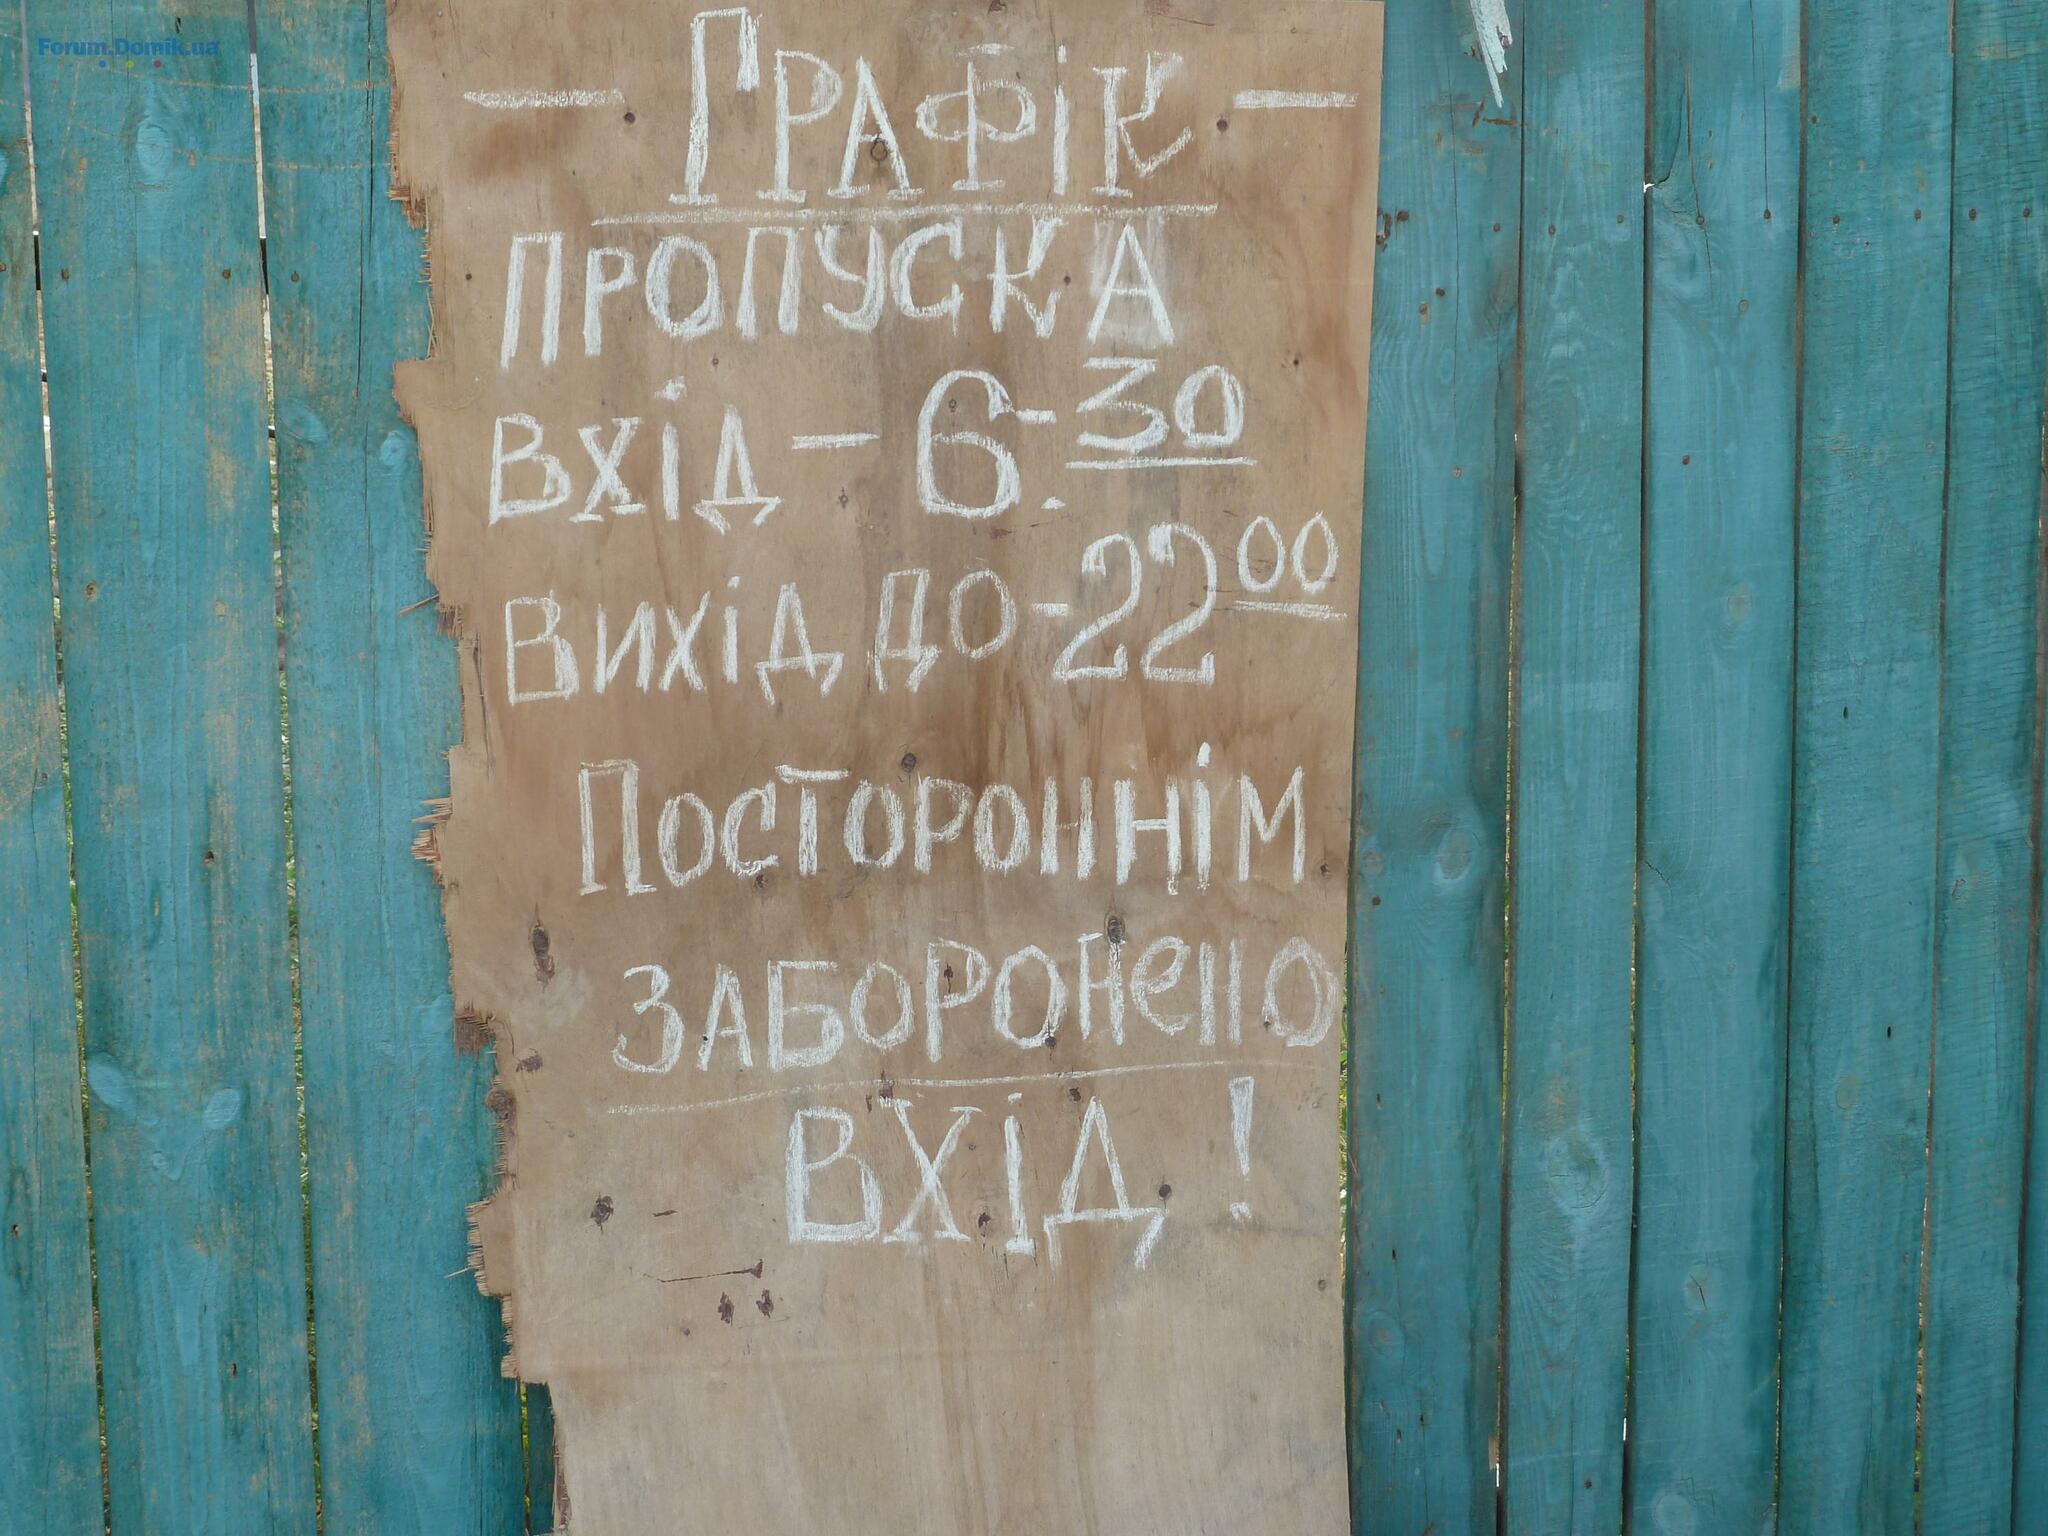 Forum.Domik.ua
— ГРАФІК —
ПРОПУСКА
ВХІД – 6.30
ВИХІД ДО - 22 00
ПОСТОРОННІМ
ЗАБОРОНЕНО
ВХІД!